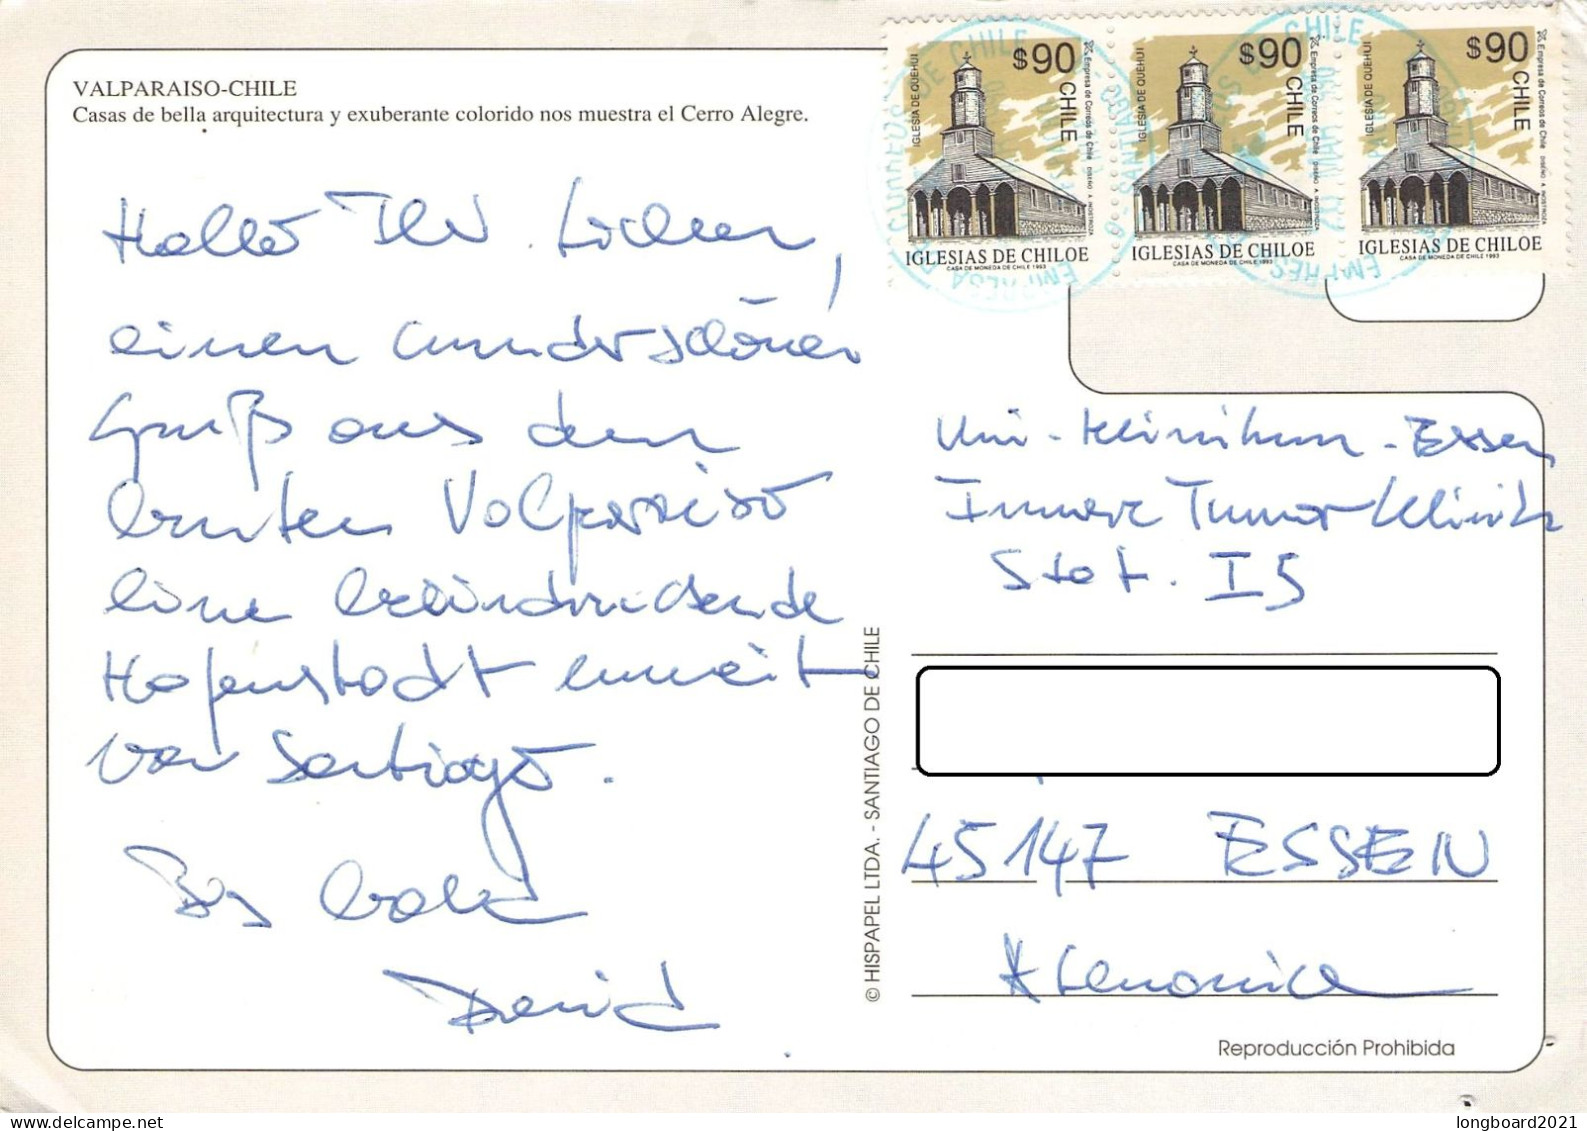 VALPARAISO-CHILE
Casas de bella arquitectura y exuberante colorido nos muestra el Cerro Alegre.
Hallo Ihr Lieben,
einen wunderschönen
Gruß aus dem
bunten Valparaiso
eine beeindruckende
Hafenstadt unweit
von Santiago.
Bis bald
David
$90 CHILE
IGLESIA DE QUEHUI
Empresa de Correos de Chile DISEÑO A INOSTROZA
IGLESIAS DE CHILOE
CASA DE MONEDA DE CHILE 1993
$90 CHILE
IGLESIA DE QUEHUI
Empresa de Correos de Chile DISEÑO A INOSTROZA
IGLESIAS DE CHILOE
CASA DE MONEDA DE CHILE 1993
$90 CHILE
IGLESIA DE QUEHUI
Empresa de Correos de Chile DISEÑO A INOSTROZA
IGLESIAS DE CHILOE
CASA DE MONEDA DE CHILE 1993
Uni-Klinikum-Essen
Innere Tumorklinik
Stat. I5
45147 ESSEN
Alemania
© HISPAPEL LTDA. - SANTIAGO DE CHILE
Reproducción Prohibida
longboard2021